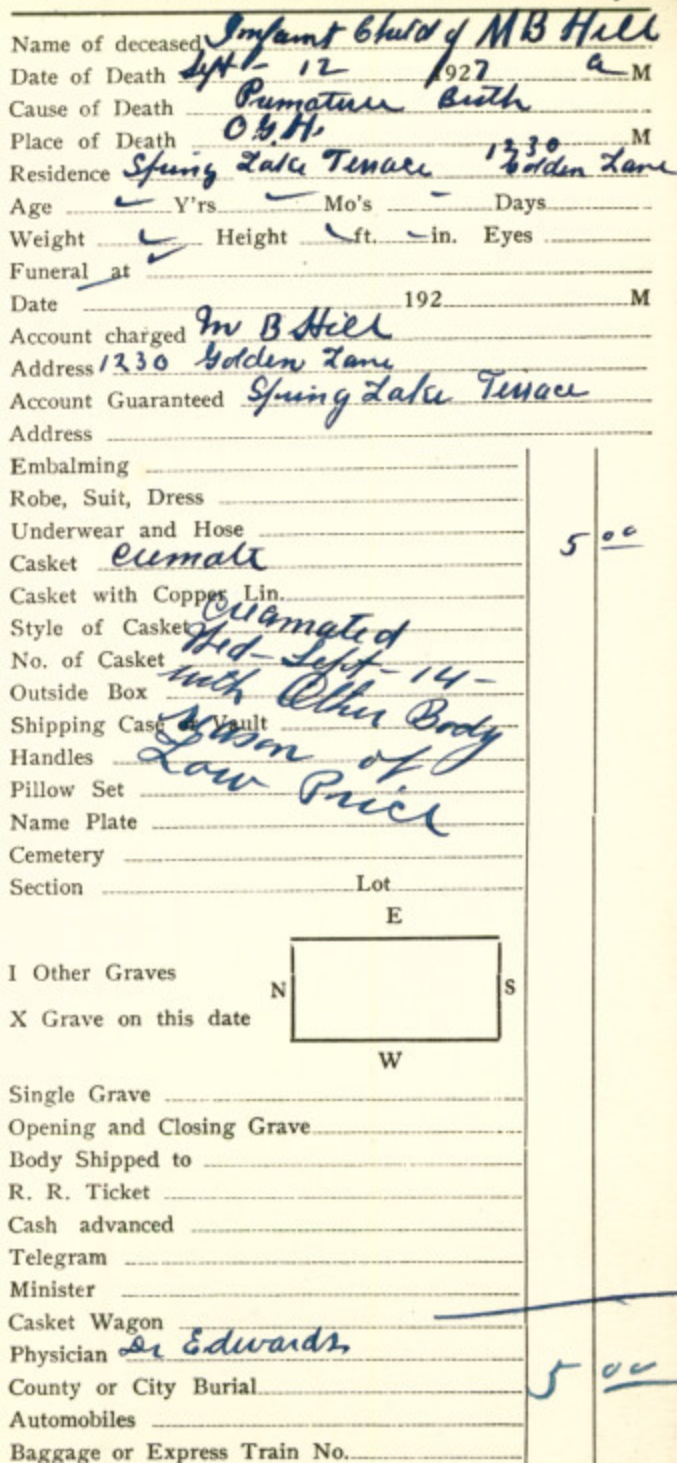 Name of deceased Infant Child of M B Hill
Date of Death Sept - 12 1927 a M
Cause of Death Premature Birth
Place of Death O.G.H. M
Residence Spring Lake Terrace 1230 Golden Lane
Age Y'rs Mo's Days
Weight Height ft. in. Eyes
Funeral at
Date 192 M
Account charged M B Hill
Address 1230 Golden Lane
Account Guaranteed Spring Lake Terrace
Address
Embalming
Robe, Suit, Dress
Underwear and Hose
Casket Cremate 5 00
Casket with Copper Lin.
Style of Casket Creamated
No. of Casket Wed - Sept - 14 -
Outside Box with Other Body
Shipping Case or Vault Reason of
Handles Low Price
Pillow Set
Name Plate
Cemetery
Section Lot
E
I Other Graves
N S
X Grave on this date
W
Single Grave
Opening and Closing Grave
Body Shipped to
R. R. Ticket
Cash advanced
Telegram
Minister
Casket Wagon
Physician Dr Edwards
County or City Burial 5 00
Automobiles
Baggage or Express Train No.